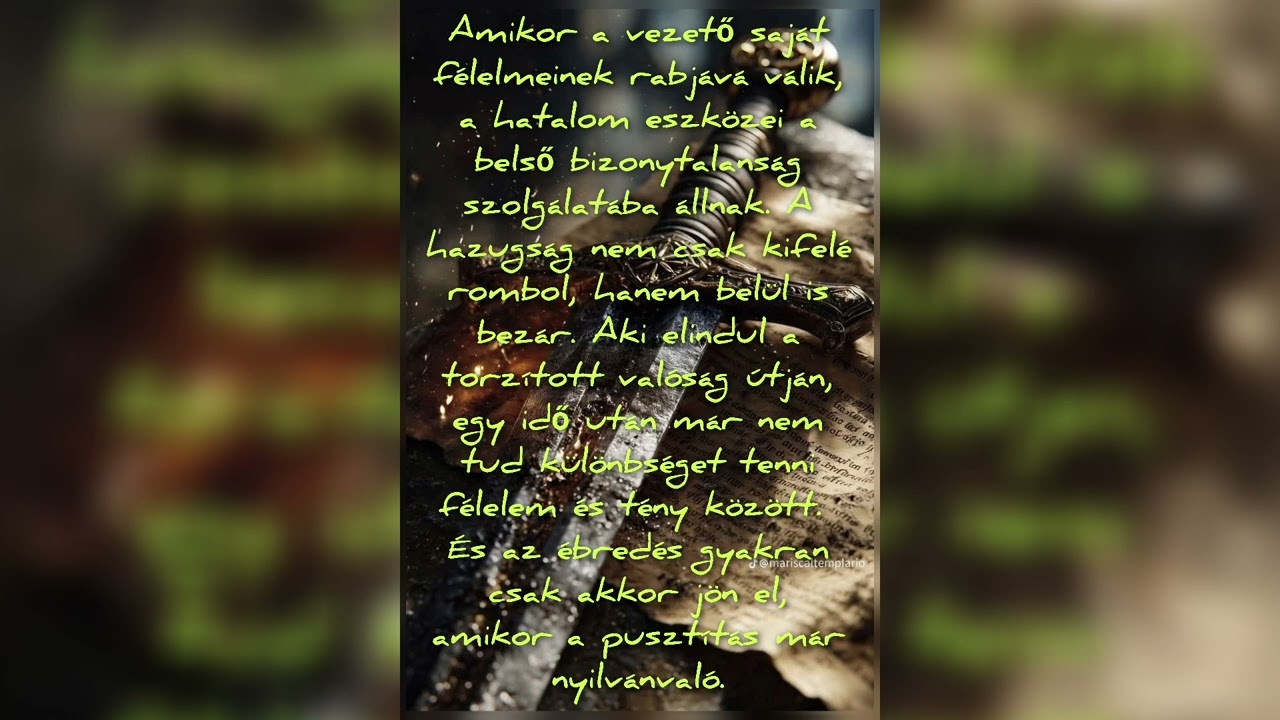 Amikor a vezető saját
félelmeinek rabjává válik,
a hatalom eszközei a
belső bizonytalanság
szolgálatába állnak. A
hazugság nem csak kifelé
rombol, hanem belül is
bezár. Aki elindul a
torzított valóság útján,
egy idő után már nem
tud különbséget tenni
félelem és tény között.
És az ébredés gyakran
@mariscaltemplario
csak akkor jön el,
amikor a pusztítás már
nyilvánvaló.